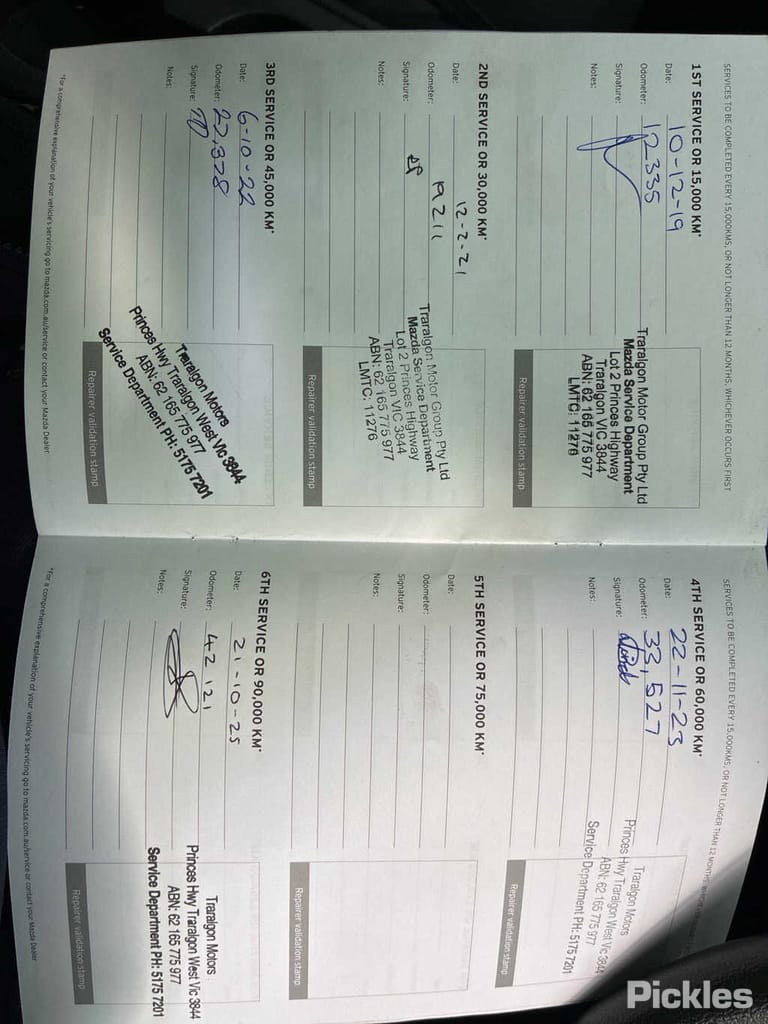 SERVICES TO BE COMPLETED EVERY 15,000KMS, OR NOT LONGER THAN 12 MONTHS, WHICHEVER OCCURS FIRST
1ST SERVICE OR 15,000 KM*
Date: 10-12-19
Odometer: 12335
Signature:
Notes:
Traralgon Motor Group Pty Ltd
Mazda Service Department
Lot 2 Princes Highway
Traralgon VIC 3844
ABN: 62 165 775 977
LMTC: 11276
Repairer validation stamp
2ND SERVICE OR 30,000 KM*
Date: 12-2-21
Odometer: 19211
Signature:
Notes:
Traralgon Motor Group Pty Ltd
Mazda Service Department
Lot 2 Princes Highway
Traralgon VIC 3844
ABN: 62 165 775 977
LMTC: 11276
Repairer validation stamp
3RD SERVICE OR 45,000 KM*
Date: 6-10-22
Odometer: 27,378
Signature:
Notes:
Traralgon Motors
Princes Hwy Traralgon West Vic 3844
ABN: 62 165 775 977
Service Department PH: 5175 7201
Repairer validation stamp
*For a comprehensive explanation of your vehicle's servicing go to mazda.com.au/service or contact your Mazda Dealer.
SERVICES TO BE COMPLETED EVERY 15,000KMS, OR NOT LONGER THAN 12 MONTHS,
4TH SERVICE OR 60,000 KM*
Date: 22-11-23
Odometer: 33,527
Signature:
Notes:
Traralgon Motors
Princes Hwy Traralgon West Vic 3844
ABN: 62 165 775 977
Service Department PH: 5175 7201
Repairer validation stamp
5TH SERVICE OR 75,000 KM*
Date:
Odometer:
Signature:
Notes:
Repairer validation stamp
6TH SERVICE OR 90,000 KM*
Date: 21-10-25
Odometer: 42121
Signature:
Notes:
Traralgon Motors
Princes Hwy Traralgon West Vic 3844
ABN: 62 165 775 977
Service Department PH: 5175 7201
Repairer validation stamp
*For a comprehensive explanation of your vehicle's servicing go to mazda.com.au/service or contact your Mazda Dealer
Pickles